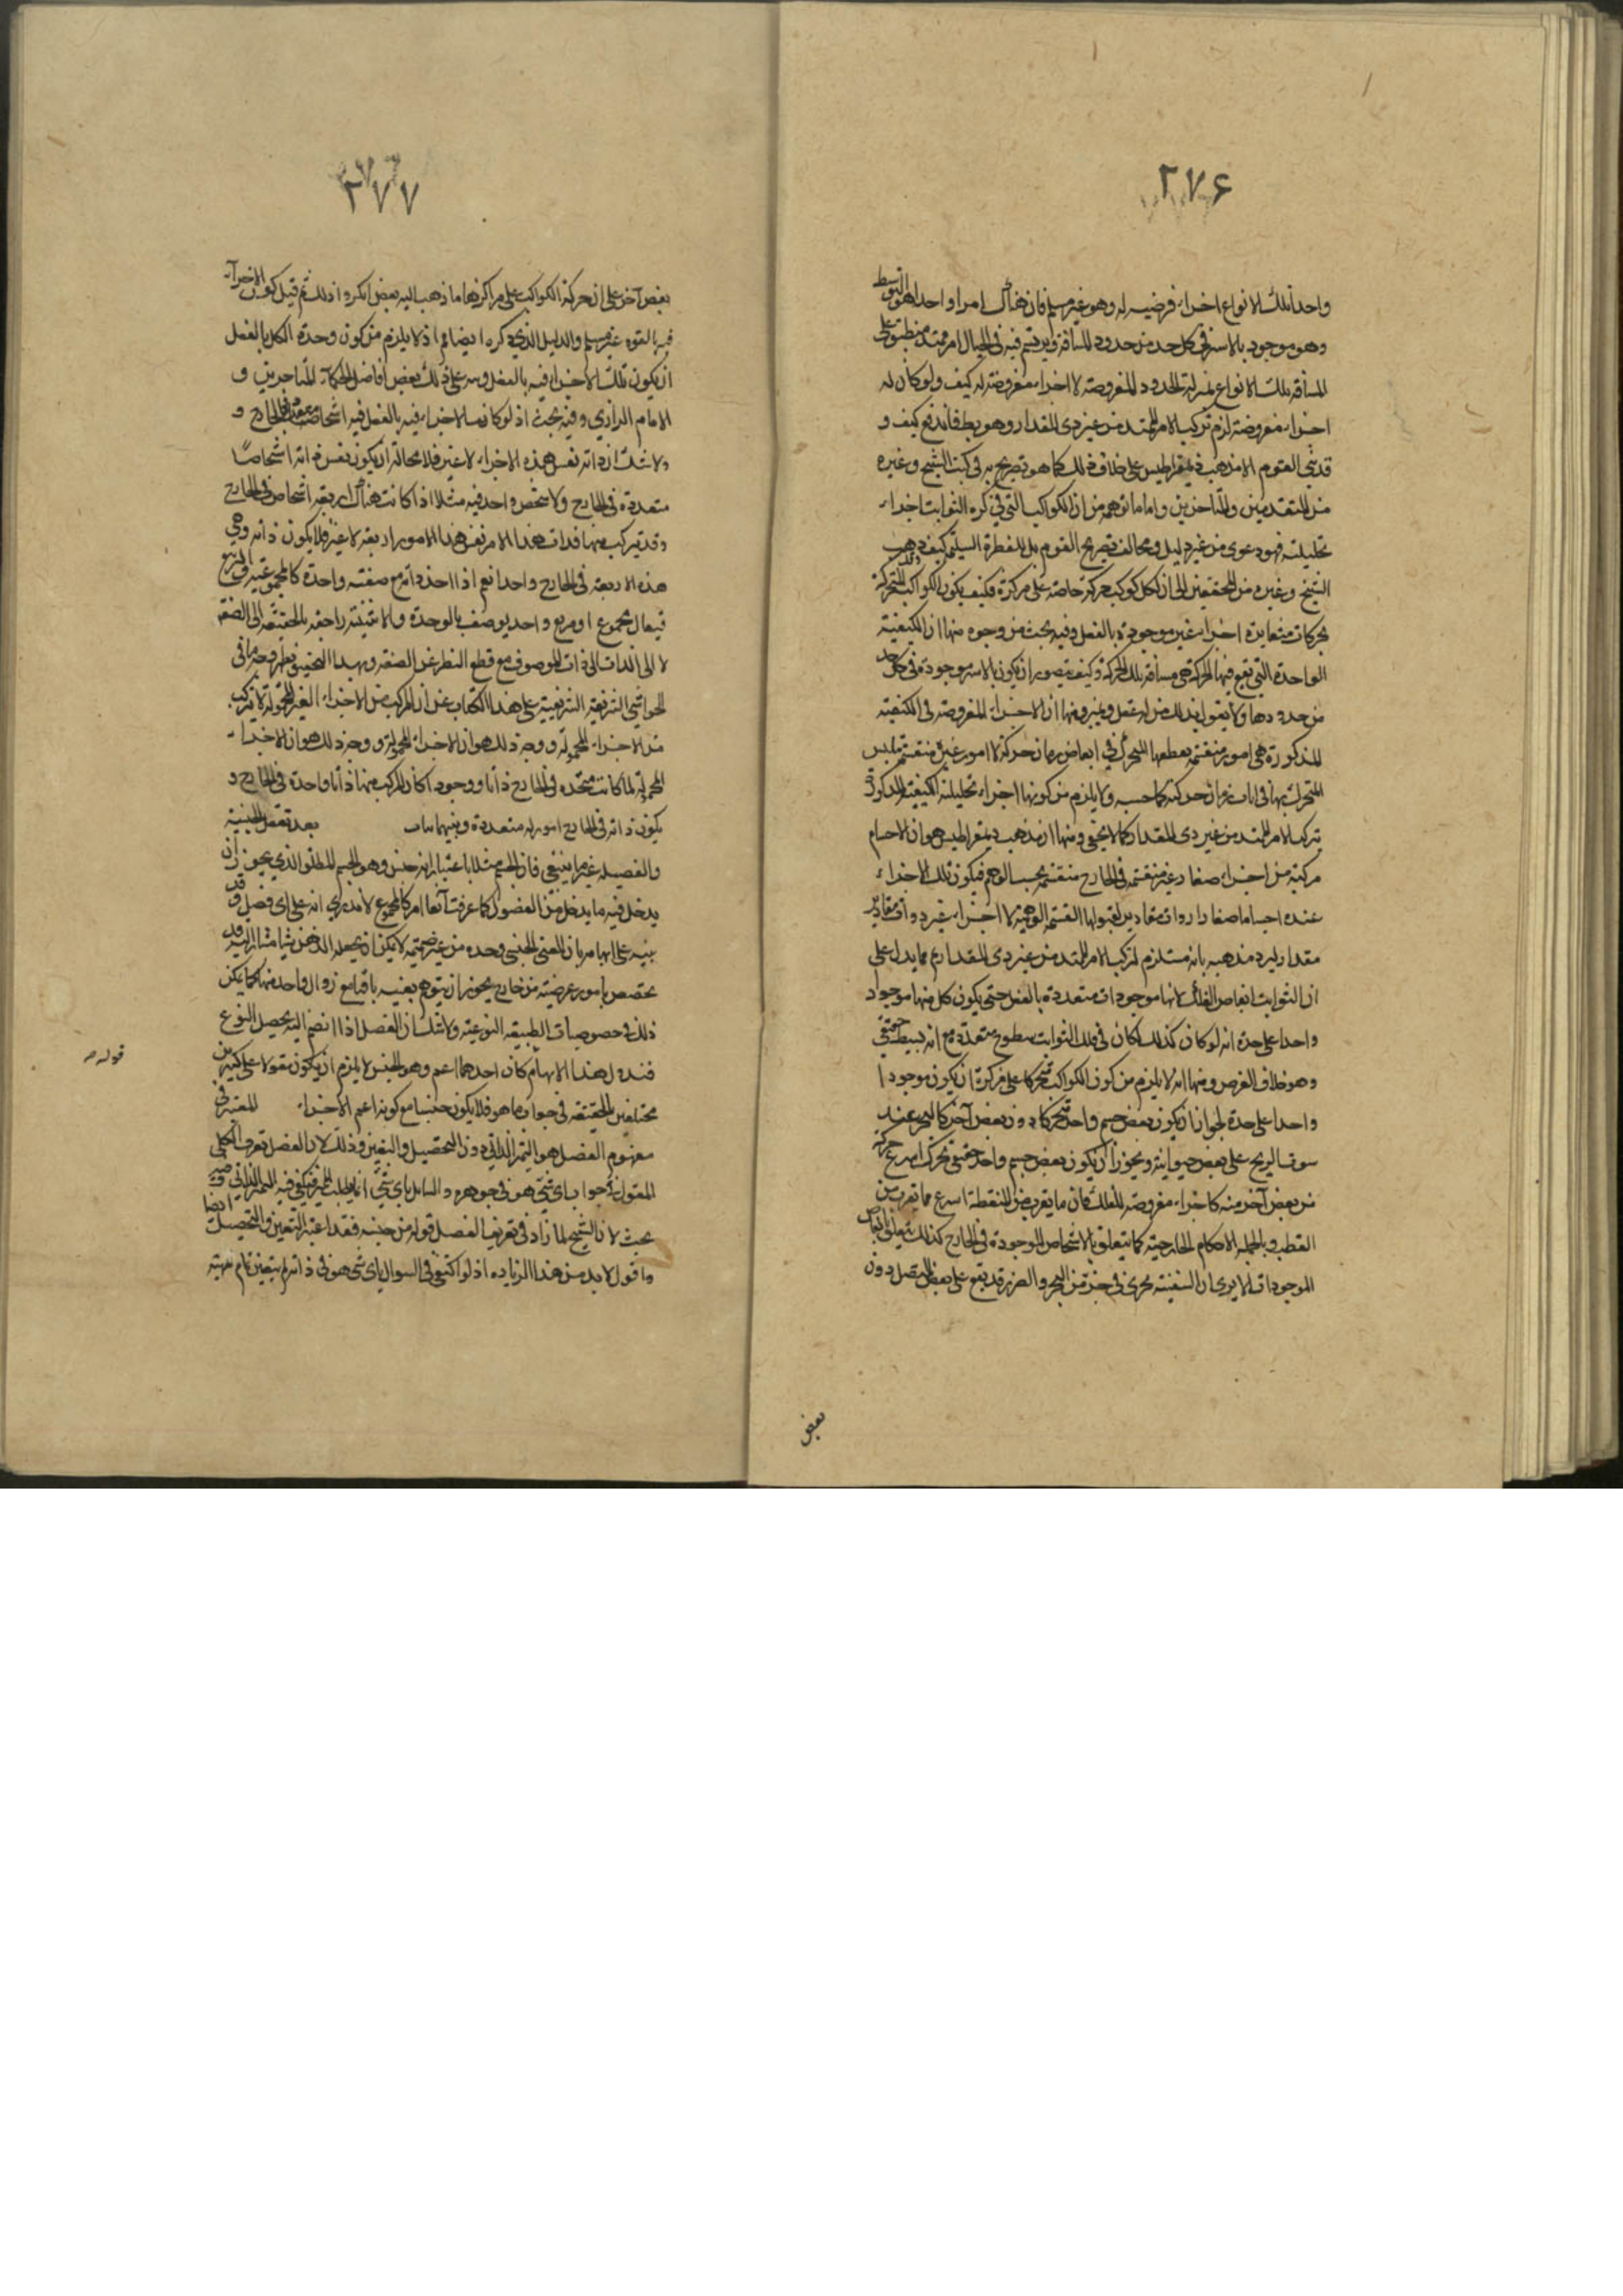 ۲۷۶
واحدا تلك الانواع اجزاء فرضيه له وهو غير مسلم فان هناك امرا واحدا هو التوسط
وهو موجود بالاسر فى كل حد من حدود المسافة ويرتسم فيه فى الخيال امر ممتد منطبق على
المسافه تلك الانواع بمنزلة الحدود المفروضه لا اجزاء مفروضة له كيف ولو كان له
اجزاء مفروضة لزم تركب الامر الممتد من غير ذى المقدار وهو بط فاندفع كيف و
القوم الا مذهب ذيمقراطيس على خلاف ذلك كما هو تصريح به فى كتب الشيخ وغيره
من المتقدمين والمتاخرين واما ما توهمه من ان الكواكب التى فى كره الثوابت اجزاء
تحليلية فهو دعوى من غير دليل ومخالف تصريح القوم بل للفطرة السليمة كيف وذهب
الشيخ وغيره من المحققين الى ان لكل كوكب حركة خاصة على مركزه فكيف يكون الكواكب المتحركة
بحركات متغايرة اجزاء غير موجودة بالفعل وفيه بحث من وجوه منها ان الكيفية
الواحدة التى تقع فيها الحركة هى مسافة تلك الحركة وكيف يتصور ان يكون بالاسر موجودة فى كل حد
من حدودها ولا يقول بذلك من له عقل وغيره ومنها ان الاجزاء المفروضة فى الكيفية
المذكورة هى امور منقسمة يقطعها المتحرك فى ابعاض زمان حركته لا امور غير منقسمة يتلبس
المتحرك بها فى انات زمان حركته كما حسبه ولا يلزم من كونها اجزاء تحليلية للكيفية المذكورة
تركب الامر الممتد من غير ذى المقدار كما لا يخفى ومنها ان مذهب ذيمقراطيس هو ان الاجسام
مركبة من اجزاء صغار غير منقسمة فى الخارج منقسمة بحسب الوهم فيكون تلك الاجزاء
عنده اجساما صغارا ذوات مقادير لقبولها القسمة الوهمية لا اجزاء غير ذوات مقادير
مقدار ليرد مذهبه بانه مستلزم لتركب الامر الممتد من غير ذى المقدار مما يدل على
ان الثوابت ابعاض الفلك لا انها موجودات متعددة بالفعل حتى يكون كل منها موجودا
واحدا على حدة انه لو كان كذلك لكان فى فلك الثوابت سطوح متعددة مع انه بسيط حقيقي
وهو خلاف الفرض ومنها انه لا يلزم من كون الكواكب متحركا على مركزه ان يكون موجودا
واحدا على حدة لجواز ان يكون بعض جسم واحد متحركا دون بعض آخر كالبحر عند
سوق الريح على بعض ويجوز ان يكون بعض جسم واحد حقيقى تحرك اسرع حركة
من بعض آخر منه كاجزاء مفروضه للفلك فان ما يقرب من المنطقة اسرع مما يقرب من
القطب وبالجملة الاحكام الخارجية كما يتعلق بالاشخاص الموجودة فى الخارج كذلك يتعلق بابعاض
الموجودات الا يرى ان السفينة تجرى فى جزء من البحر قد يقع على بعض المتصل دون
بعض
۲۷۷
بعض آخر على ان حركة الكواكب على مراكزها ما ذهب اليه بعض انكروا ذلك ثم قيل كون الاجزاء
فيه بالقوه غير مسلم والدليل الذي ذكره ايضا تم اذ لا يلزم من كون وحدة الكل بالفعل
ان يكون تلك الاجزاء فيه بالفعل على ذلك بعض افاضل الحكماء المتاخرين و
الامام الرازي وفيه بحث اذ لو كانت الاجزاء فيه بالفعل فيه اشخاص متعددة فى الخارج و
ولا شك ان ذاته نفس هذه الاجزاء لا غير فلا محالة ان يكون نفس ذاته اشخاصا
متعددة فى الخارج ولا شخص واحد فيه مثلا اذا كانت هناك اربعة اشخاص فى الخارج
وقد يتركب منها فذات هذا الامر نفس هذا الامور اربعة لا غير فلا يكون ذاته وهى
هذه الاربعة فى الخارج واحدا نعم اذا اخذ ذاته مع صفة واحدة كالمجموعية او المربع
فيقال مجموع او مربع واحد يوصف بالوحدة والاثنينية راجعه بالحقيقة الى الصفة
لا الى الذات الى ذات الموصوف مع قطع النظر عن الصفه وبهذا التحقيق يظهر صحة ما فى
الحواشى الشريفية الشريفية على هذا الكتاب عن ان المركب من الاجزاء الغير المحمولة لا يتركب
من الاجزاء المحمولة ووجه ذلك هو ان الاجزاء المحمولة ووجه ذلك هو ان الاجزاء
المحمولة لما كانت متحده فى الخارج ذاتا ووجودا كان المركب منها ذاتا واحدة فى الخارج و
يكون ذاته فى الخارج امور له متعددة وبينهما بعد تعقل الجنسية
والفصيله غير ما ينبغى فان الجسم مثلا باعتبار انه جنس وهو الجسم المطلق الذى يجوز ان
يدخل فيه ما يدخل من الفصول كما عرفت آنفا امر كالمجموع لا ندرى انه على اى فصل وقد
نبه على ابهامه بان المعنى الجنسي وحده من غير ضميمة لا يمكن ان يجعله الذهن شيئا مشارا اليه قد
تخصص بامور عرضية من خارج يجوز ان يتوهم بعينه باقيا مع زوال واحد منها كما يمكن
ذلك فى خصوصيات الطبيعه النوعية ولا شك ان الفصل اذا انضم اليه يحصل النوع
هذا الابهام كان احدهما اعم وهو الجنس لا يلزم ان يكون مقولا على كثيرين
مختلفين بالحقيقة فى جواب ما هو فلا يكون جنسا مع كونه اعم الاجزاء المعتبر فى
مفهوم الفصل هو التميز الذاتي دون التحصيل والتعين وذلك لان الفصل تعريف الكلى
المقول فى جواب اى شئ هو فى جوهره والسائل باى شئ انما يطلب المميز فيكفى فيه المميز الذاتى وفيه
بحث لان الشيخ لما زاد فى تعريف الفصل قوله من جنسه فقد اعتبر التعين والتحصيل ايضا
واقول لا بد من هذا الزياده اذ لو اكتفى فى السوال باى شئ هو فى ذاته لم يتعين تمام مهيته
قوله